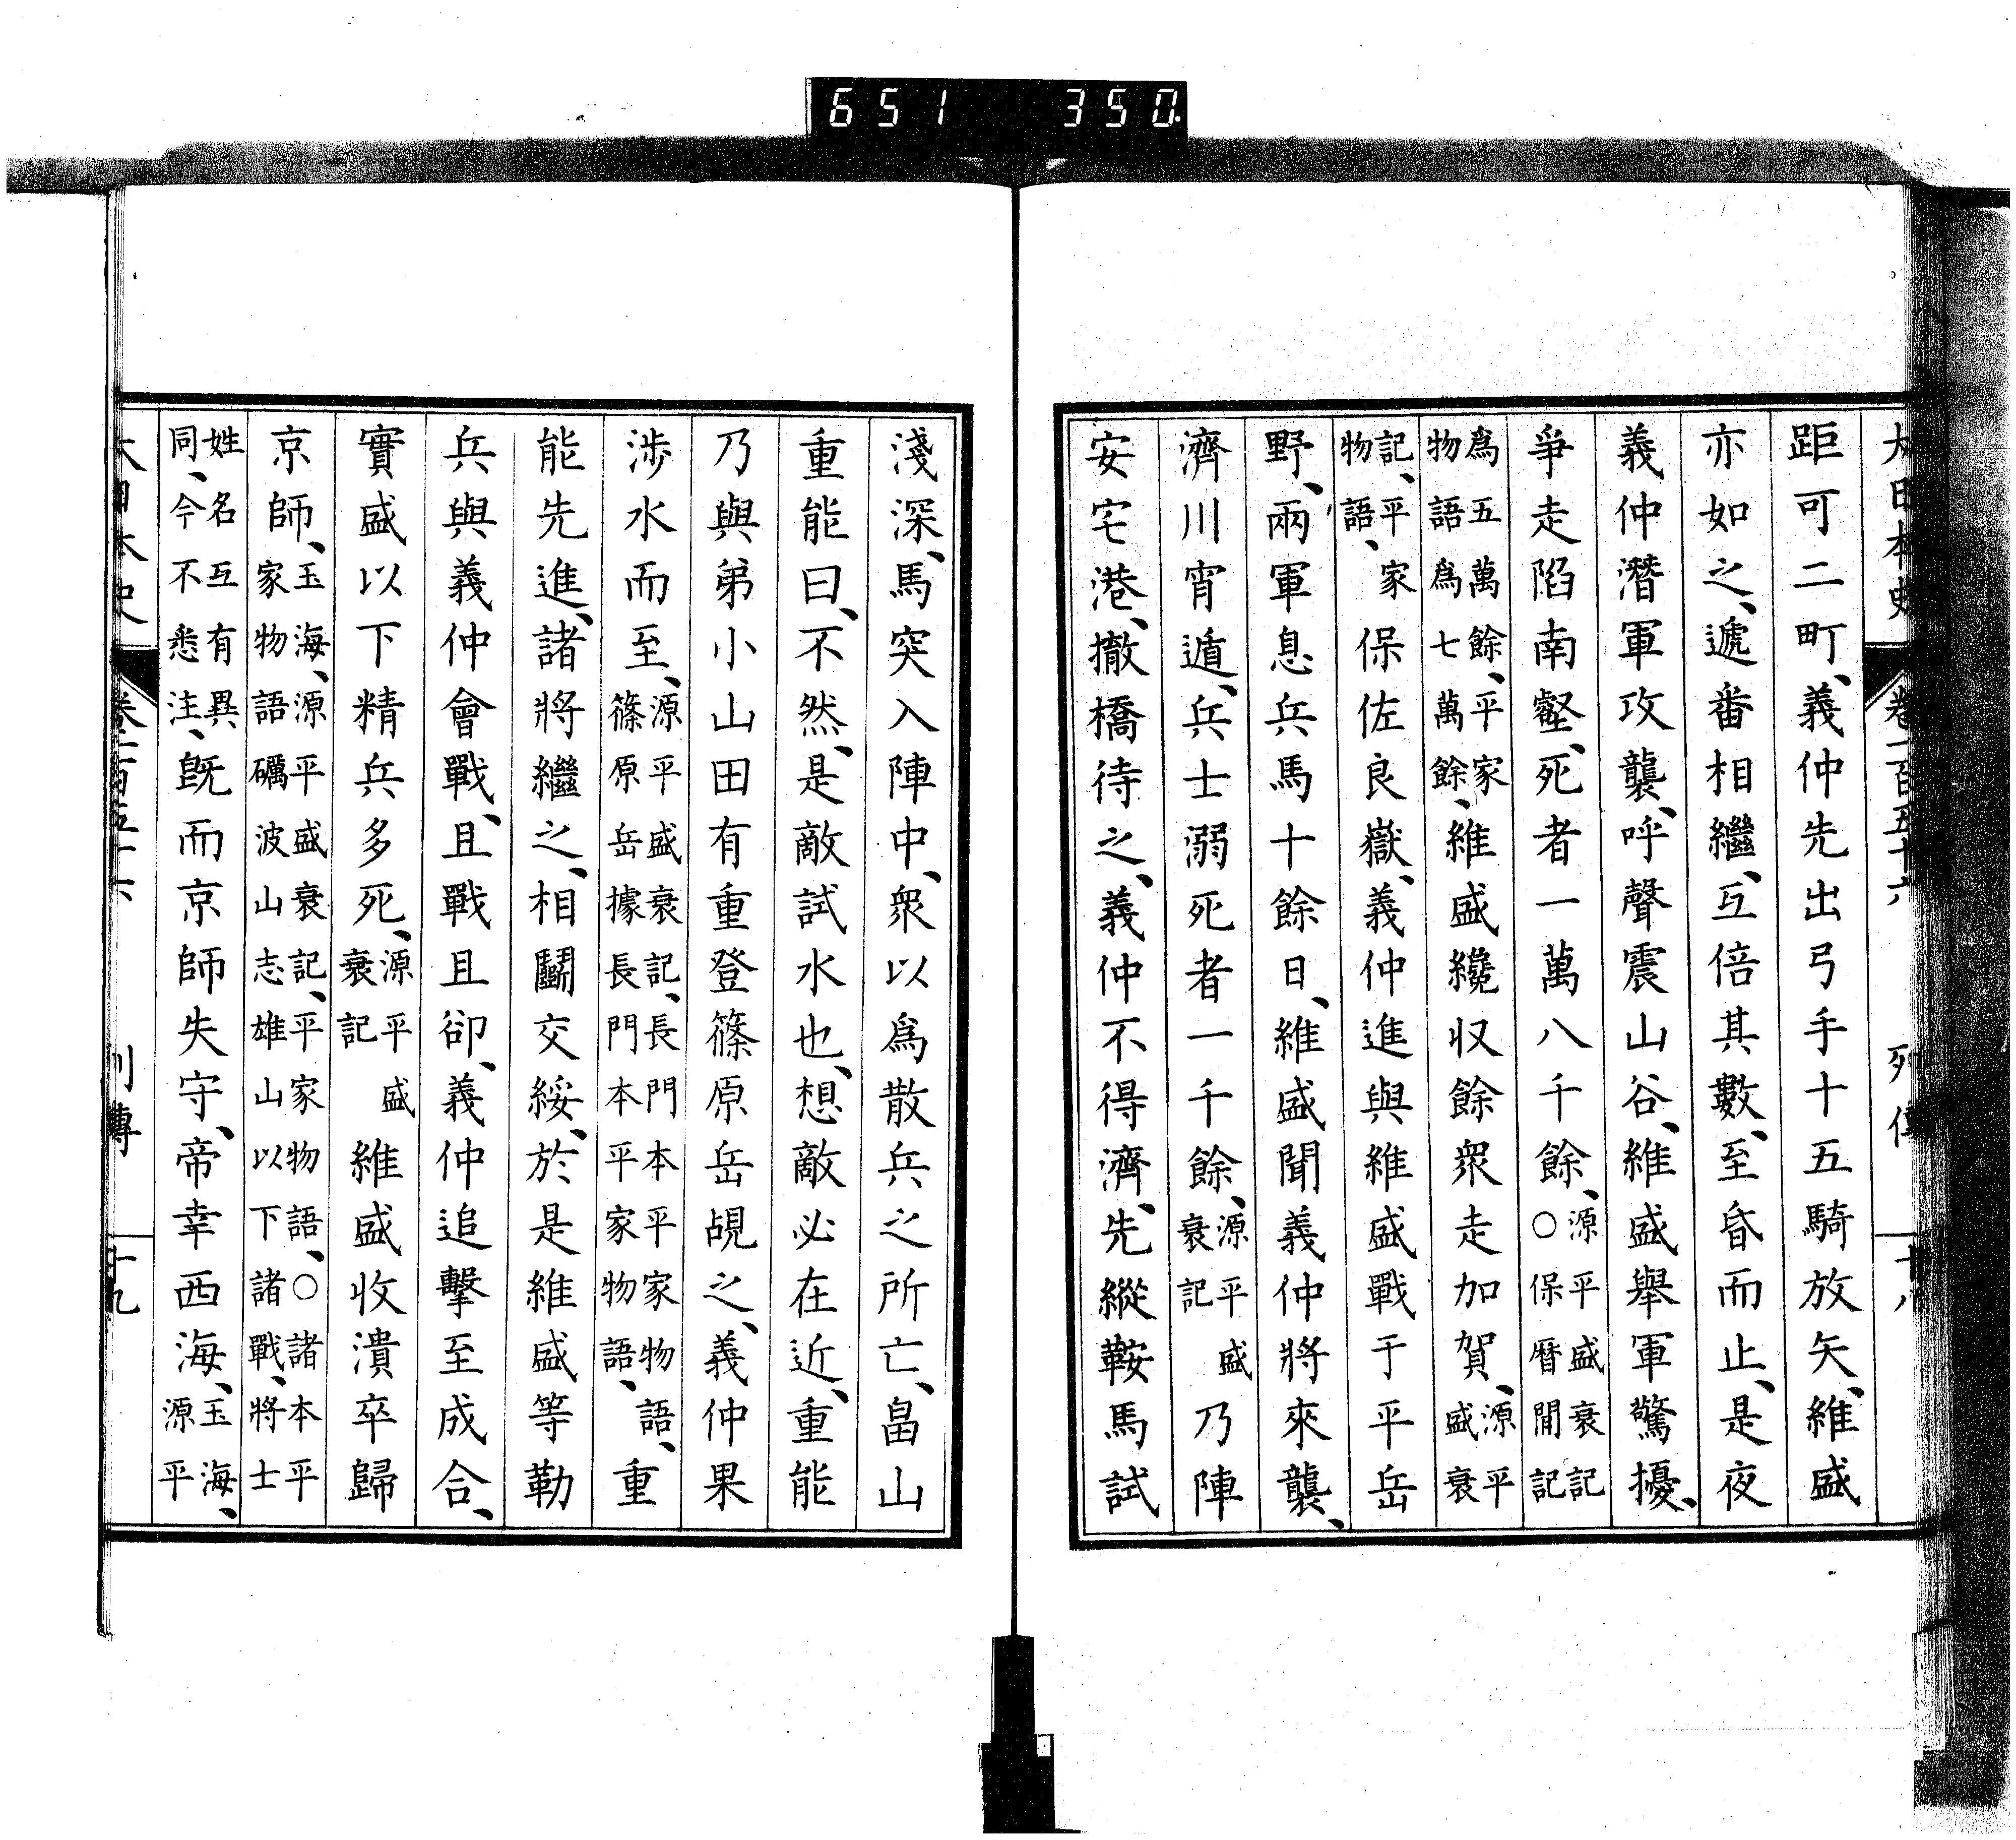 651 350
大日本史 卷一百五十六 列傳 十八
距可二町、義仲先出弓手十五騎放矢、維盛
亦如之、遞番相繼、互倍其數、至昏而止、是夜
義仲潛軍攻襲、呼聲震山谷、維盛舉軍驚擾、
爭走陷南壑、死者一萬八千餘、源平盛衰記○保曆閒記
爲五萬餘、平家物語爲七萬餘、維盛纔収餘衆走加賀、源平盛衰
記、平家物語、保佐良嶽、義仲進與維盛戰于平岳
野、兩軍息兵馬十餘日、維盛聞義仲將來襲、
濟川宵遁、兵士溺死者一千餘、源平盛衰記乃陣
安宅港、撤橋待之、義仲不得濟、先縱鞍馬試
淺深、馬突入陣中、衆以爲散兵之所亡、畠山
重能曰、不然、是敵試水也、想敵必在近、重能
乃與弟小山田有重登篠原岳覘之、義仲果
涉水而至、源平盛衰記、長門本平家物語、篠原岳據長門本平家物語、重
能先進、諸將繼之、相鬭交綏、於是維盛等勒
兵與義仲會戰、且戰且卻、義仲追擊至成合、
實盛以下精兵多死、源平盛衰記維盛收潰卒歸
京師、玉海、源平盛衰記、平家物語、○諸本平家物語礪波山志雄山以下諸戰、將士
姓名互有異同、今不悉注、旣而京師失守、帝幸西海、玉海、源平
大日本史 卷一百五十六 列傳 十九